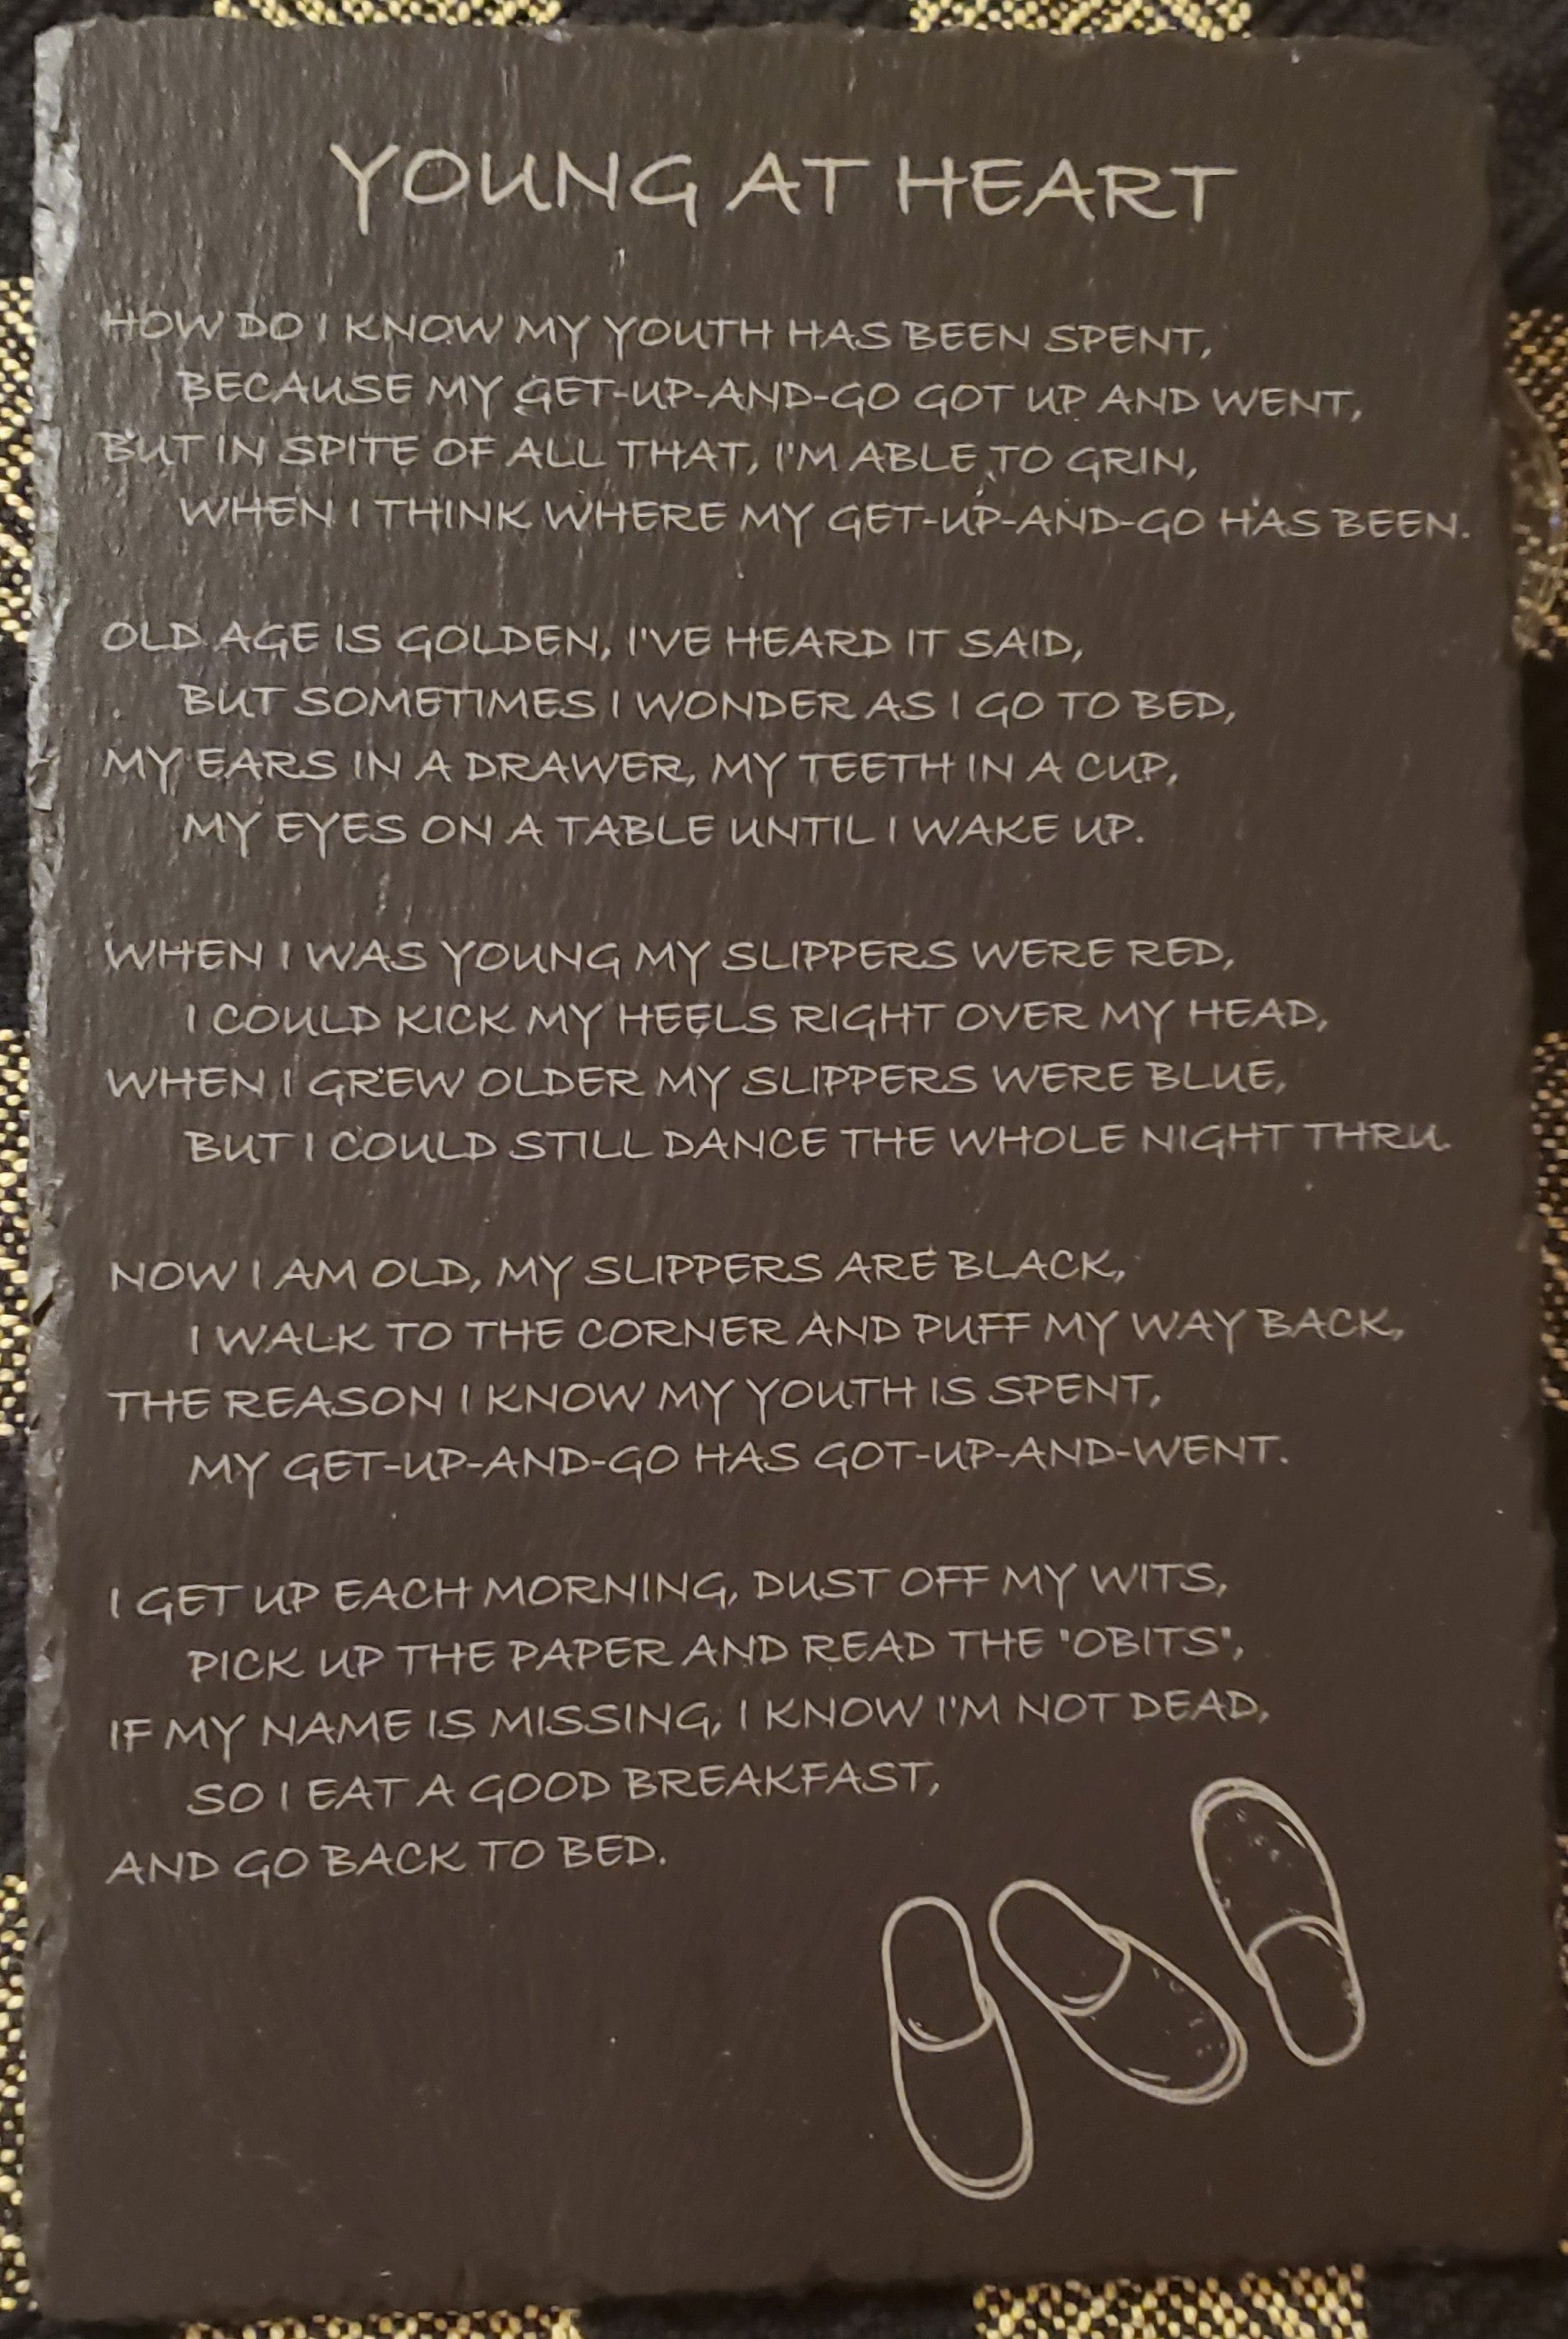 YOUNG AT HEART
HOW DO I KNOW MY YOUTH HAS BEEN SPENT,
BECAUSE MY GET-UP-AND-GO GOT UP AND WENT,
BUT IN SPITE OF ALL THAT, I'M ABLE TO GRIN,
WHEN I THINK WHERE MY GET-UP-AND-GO HAS BEEN.
OLD AGE IS GOLDEN, I'VE HEARD IT SAID,
BUT SOMETIMES I WONDER AS I GO TO BED,
MY EARS IN A DRAWER, MY TEETH IN A CUP,
MY EYES ON A TABLE UNTIL I WAKE UP.
WHEN I WAS YOUNG MY SLIPPERS WERE RED,
I COULD KICK MY HEELS RIGHT OVER MY HEAD,
WHEN I GREW OLDER MY SLIPPERS WERE BLUE,
BUT I COULD STILL DANCE THE WHOLE NIGHT THRU.
NOW I AM OLD, MY SLIPPERS ARE BLACK,
I WALK TO THE CORNER AND PUFF MY WAY BACK,
THE REASON I KNOW MY YOUTH IS SPENT,
MY GET-UP-AND-GO HAS GOT-UP-AND-WENT.
I GET UP EACH MORNING, DUST OFF MY WITS,
PICK UP THE PAPER AND READ THE "OBITS",
IF MY NAME IS MISSING, I KNOW I'M NOT DEAD,
SO I EAT A GOOD BREAKFAST,
AND GO BACK TO BED.